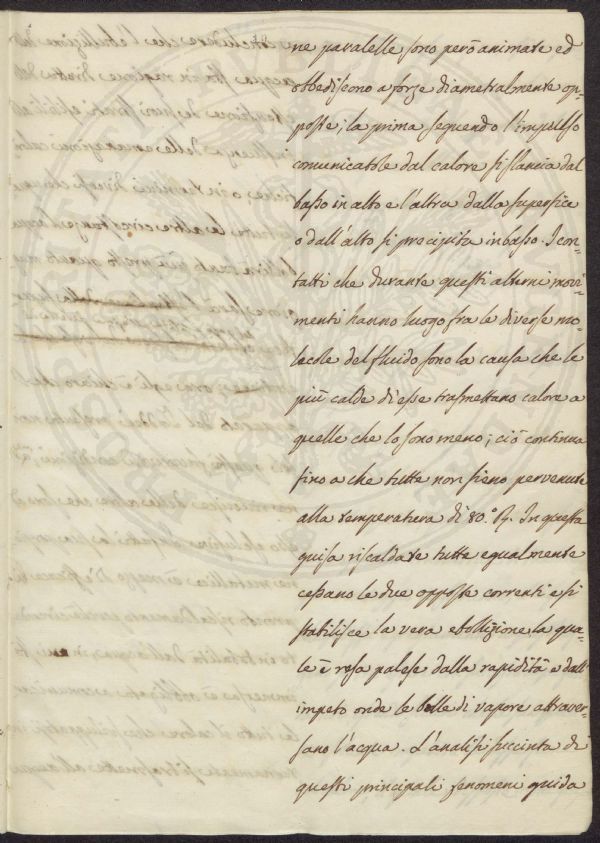 ne paralelle sono però animate ed
obbediscono a forze diametralmente op-
poste; la prima seguendo l'impulso
comunicatole dal calore si slancia dal
basso in alto e l'altra dalla superficie
o dall'alto si precipita in basso. I con-
tatti che durante questi alterni movi-
menti hanno luogo fra le diverse mo-
lecole del fluido sono la causa che le
più calde di esse trasmettano calore a
quelle che lo sono meno; ciò continua
fino a che tutte non sieno pervenute
alla temperatura di 80.° R. In questa
guisa riscaldate tutte egualmente
cessano le due opposte correnti e si
stabilisce la vera ebollizione la qua-
le è resa palese dalla rapidità e dall'
impeto onde le bolle di vapore attraver-
sano l'acqua. L'analisi succinta di
questi principali fenomeni guida